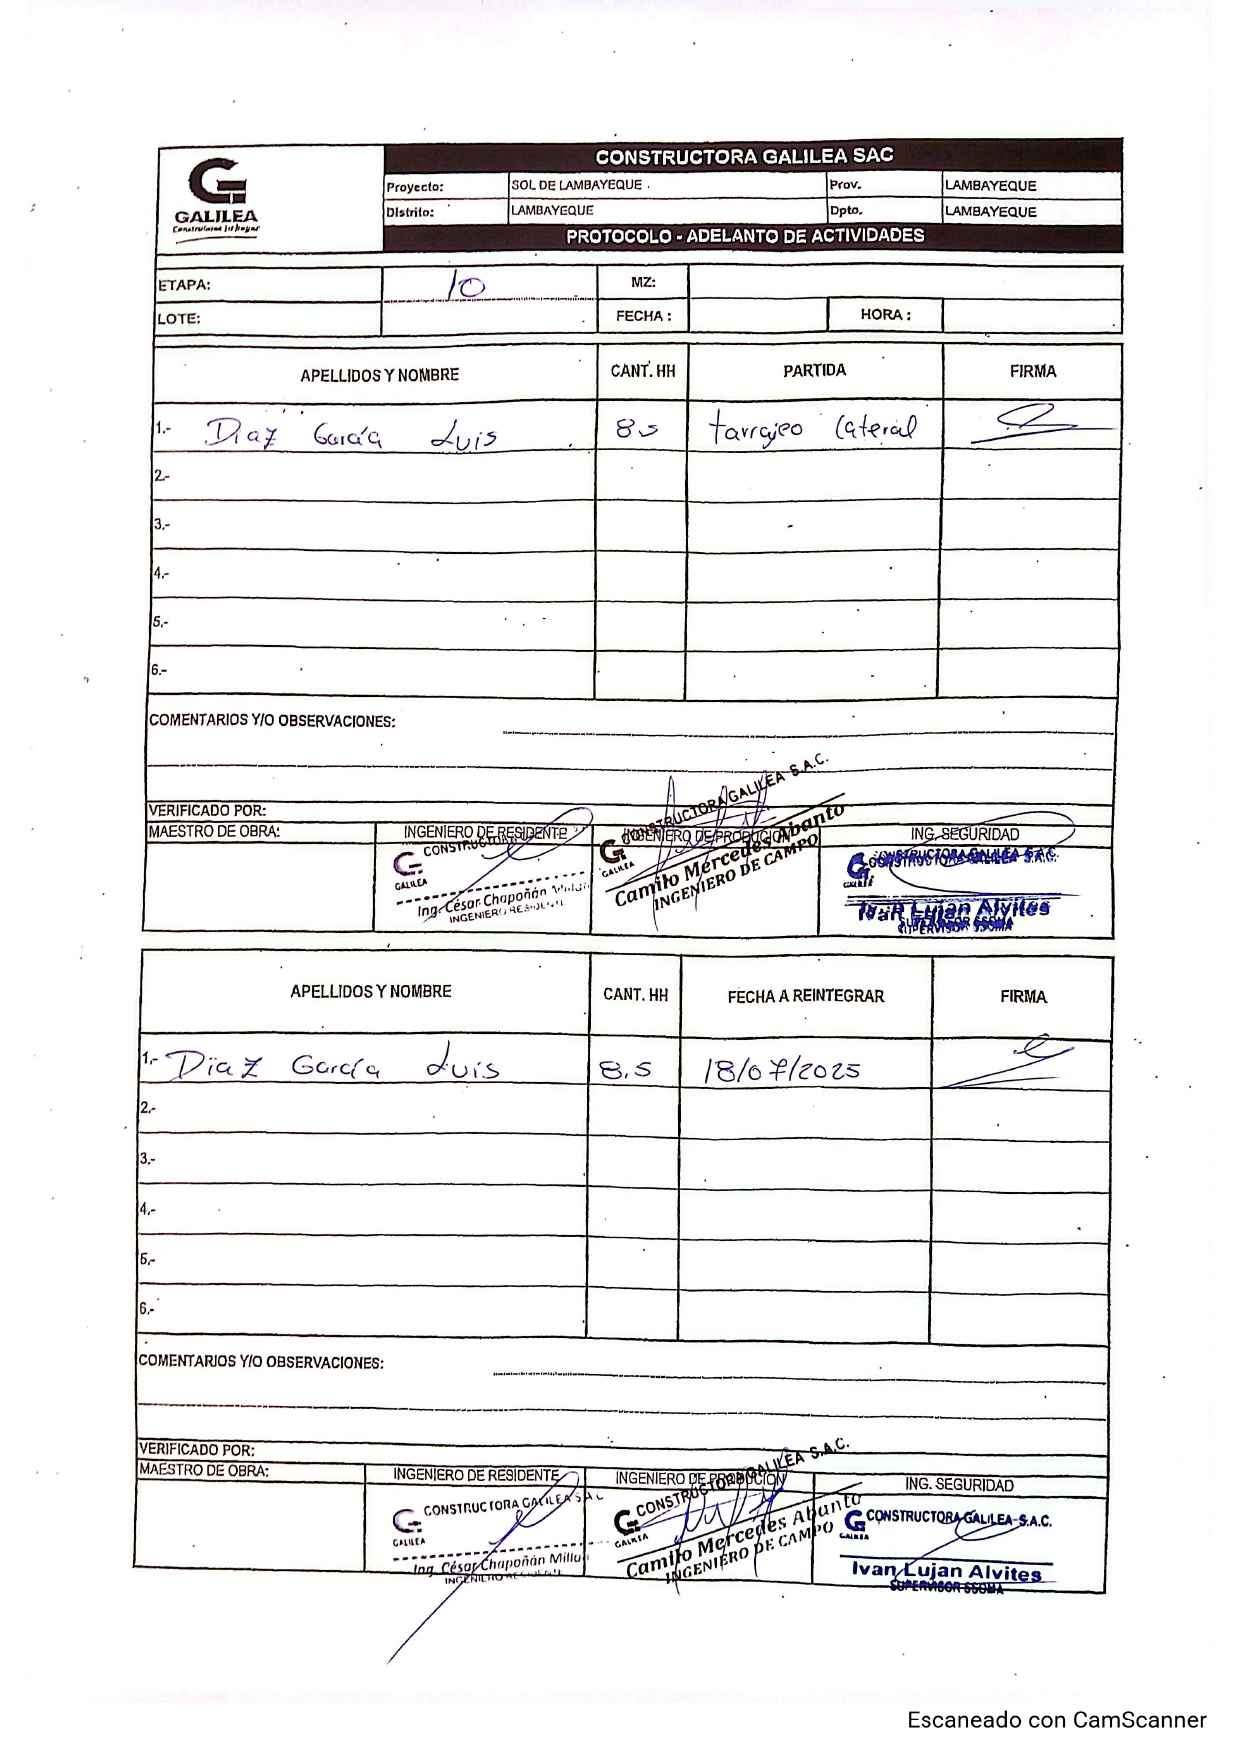 CONSTRUCTORA GALILEA SAC
GALILEA
Construimos tu hogar
Proyecto: SOL DE LAMBAYEQUE Prov. LAMBAYEQUE
Distrito: LAMBAYEQUE Dpto. LAMBAYEQUE
PROTOCOLO - ADELANTO DE ACTIVIDADES
ETAPA: 10 MZ:
LOTE: FECHA : HORA :
APELLIDOS Y NOMBRE CANT. HH PARTIDA FIRMA
1.- Diaz García Luis 8.5 tarrajeo lateral
2.-
3.-
4.-
5.-
6.-
COMENTARIOS Y/O OBSERVACIONES:
VERIFICADO POR:
MAESTRO DE OBRA: INGENIERO DE RESIDENTE INGENIERO DE PRODUCION ING. SEGURIDAD
GALILEA
Ing. César Chapoñán
INGENIERO RESIDENTE
CONSTRUCTORA GALILEA S.A.C.
GALILEA
Camilo Mercedes Abanto
INGENIERO DE CAMPO
CONSTRUCTORA GALILEA S.A.C.
Ivan Lujan Alvites
SUPERVISOR SSOMA
APELLIDOS Y NOMBRE CANT. HH FECHA A REINTEGRAR FIRMA
1.- Diaz García Luis 8.5 18/07/2025
2.-
3.-
4.-
5.-
6.-
COMENTARIOS Y/O OBSERVACIONES:
VERIFICADO POR:
MAESTRO DE OBRA: INGENIERO DE RESIDENTE INGENIERO DE PRODUCION ING. SEGURIDAD
CONSTRUCTORA GALILEA S A C
GALILEA
Ing. César Chapoñán Millu
INGENIERO RESIDENTE
CONSTRUCTORA GALILEA S.A.C.
GALILEA
Camilo Mercedes Abanto
INGENIERO DE CAMPO
CONSTRUCTORA GALILEA S.A.C.
GALILEA
Ivan Lujan Alvites
SUPERVISOR SSOMA
Escaneado con CamScanner